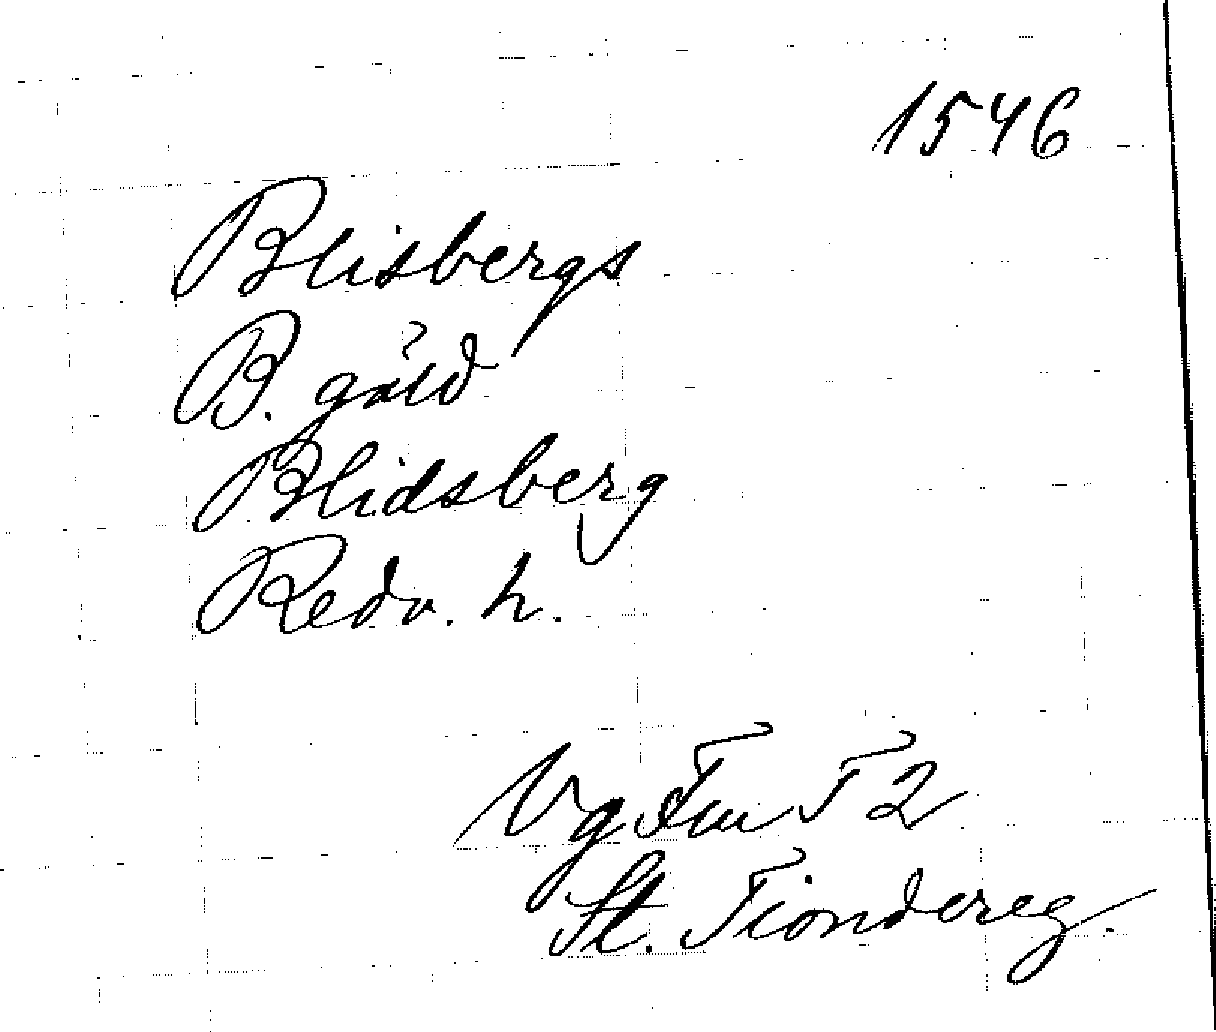 1546
Blisbergs
B. gäld
Blidsberg
Redv. h.
Vg Tur T 2
St. Tiondereg.